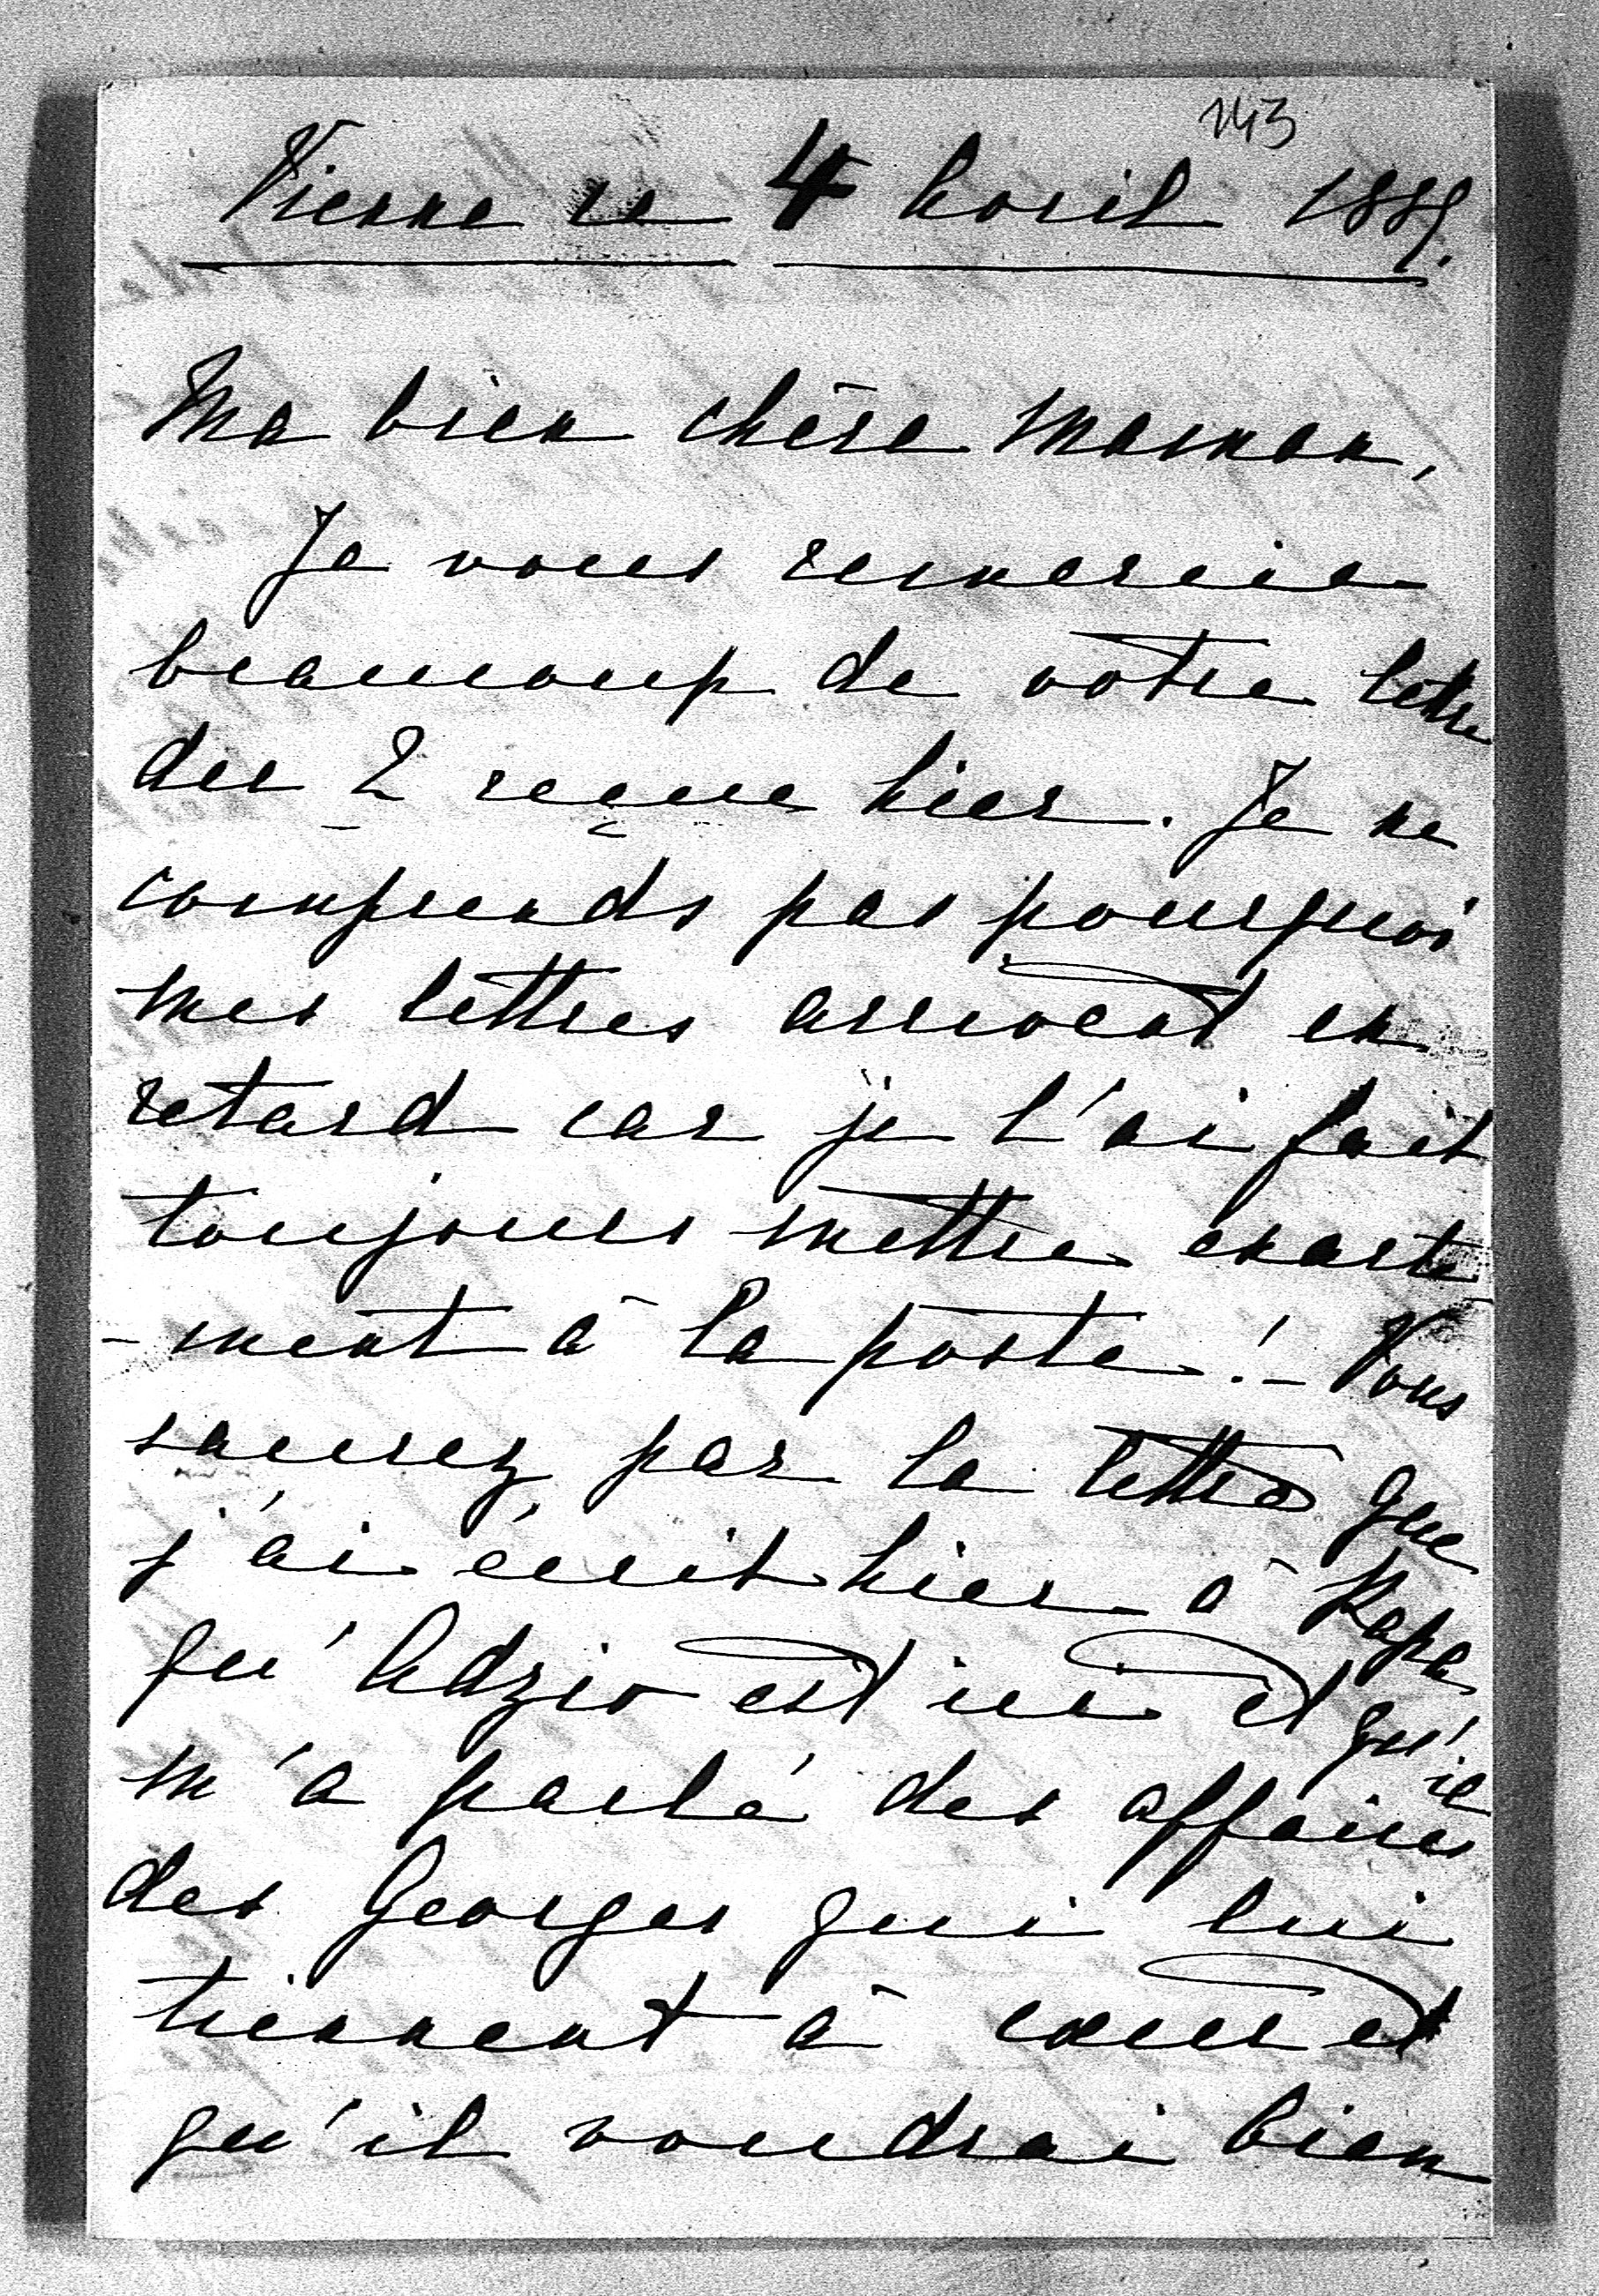 143
Vienne le 4 Avril 1889.
Ma bien chère Maman,
Je vous remercie
beaucoup de votre lettre
du 2 reçue hier. Je ne
comprends pas pourquoi
mes lettres arrivent en
retard car je l'ai fait
toujours mettre exacte
-ment à la poste! - Vous
saurez par la lettre que
j'ai écrit hier à Papa
qu'Adzio est ici et qu'il
m'a parlé des affaires
des Georges qui lui
tiennent à cœur et
qu'il voudrai bien